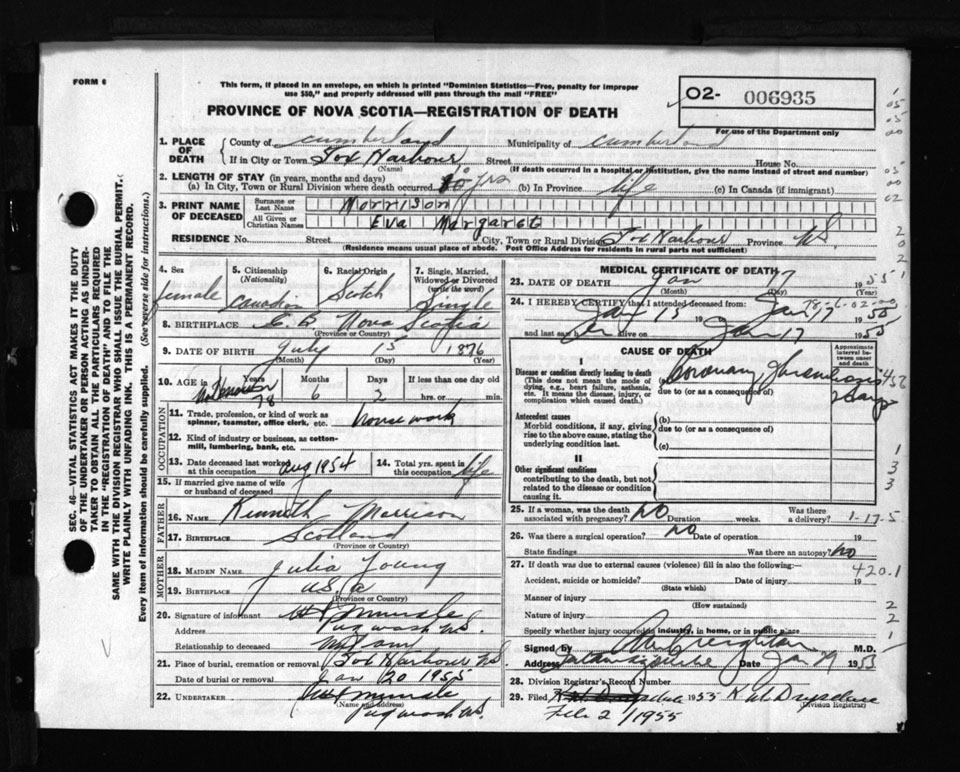 FORM 6
This form, if placed in an envelope, on which is printed "Dominion Statistics—Free, penalty for improper
use $50," and properly addressed will pass through the mail "FREE"
PROVINCE OF NOVA SCOTIA—REGISTRATION OF DEATH
O2- 006935
For use of the Department only
1. PLACE OF DEATH
County of Cumberland Municipality of Cumberland
If in City or Town Fox Harbour Street House No.
(Name) (If death occurred in a hospital or institution, give the name instead of street and number)
2. LENGTH OF STAY (in years, months and days)
(a) In City, Town or Rural Division where death occurred yrs (b) In Province life (c) In Canada (if immigrant)
3. PRINT NAME OF DECEASED
Surname or Last Name Morrison
All Given or Christian Names Eva Margaret
RESIDENCE No. Street City, Town or Rural Division Fox Harbour Province NS
(Residence means usual place of abode. Post Office Address for residents in rural parts not sufficient)
4. Sex female
5. Citizenship (Nationality) Canadian
6. Racial Origin Scotch
7. Single, Married, Widowed or Divorced (write the word) Single
8. BIRTHPLACE C B Nova Scotia
(Province or Country)
9. DATE OF BIRTH July 15 1876
(Month) (Day) (Year)
10. AGE in Years Months Days If less than one day old
78 6 2 hrs. or min.
OCCUPATION
11. Trade, profession, or kind of work as spinner, teamster, office clerk, etc. house work
12. Kind of industry or business, as cotton-mill, lumbering, bank, etc.
13. Date deceased last worked at this occupation Aug 1954
14. Total yrs. spent in this occupation life
15. If married give name of wife or husband of deceased
FATHER
16. NAME Kenneth Morrison
17. BIRTHPLACE Scotland
(Province or Country)
MOTHER
18. MAIDEN NAME Julia Young
19. BIRTHPLACE U.S.A
(Province or Country)
20. Signature of informant
Address Pugwash N.S.
Relationship to deceased
21. Place of burial, cremation or removal Fox Harbour NS
Date of burial or removal Jan 20 1955
22. UNDERTAKER
(Name and address)
Pugwash N.S.
MEDICAL CERTIFICATE OF DEATH
23. DATE OF DEATH Jan 17 1955
(Month) (Day) (Year)
24. I HEREBY CERTIFY that I attended deceased from:
Jan 15 19 Jan 17 1955
78-6-02-00
and last saw her alive on Jan 17 1955
CAUSE OF DEATH
Approximate interval between onset and death
I
Disease or condition directly leading to death
(This does not mean the mode of dying, e.g., heart failure, asthenia, etc. It means the disease, injury, or complication which caused death.)
Coronary Thrombosis
due to (or as a consequence of)
2 days
Antecedent causes
Morbid conditions, if any, giving rise to the above cause, stating the underlying condition last.
(b)
due to (or as a consequence of)
(c)
II
Other significant conditions
contributing to the death, but not related to the disease or condition causing it.
25. If a woman, was the death associated with pregnancy? No Duration weeks. Was there a delivery?
1-17-5
26. Was there a surgical operation? No Date of operation 19
State findings Was there an autopsy? No
27. If death was due to external causes (violence) fill in also the following:—
420.1
Accident, suicide or homicide? Date of injury 19
(State which)
Manner of injury
(How sustained)
Nature of injury
Specify whether injury occurred in industry, in home, or in public place
Signed by Creighton M.D.
Address Tatamagouche Date Jan 19
28. Division Registrar's Record Number
29. Filed 1955
(Division Registrar)
Feb 2/1955
SEC. 46—VITAL STATISTICS ACT MAKES IT THE DUTY
OF THE UNDERTAKER OR PERSON ACTING AS UNDER-
TAKER TO OBTAIN ALL THE PARTICULARS REQUIRED
IN THE "REGISTRATION OF DEATH" AND TO FILE THE
SAME WITH THE DIVISION REGISTRAR WHO SHALL ISSUE THE BURIAL PERMIT.
WRITE PLAINLY WITH UNFADING INK. THIS IS A PERMANENT RECORD.
Every item of information should be carefully supplied. (See reverse side for instructions.)